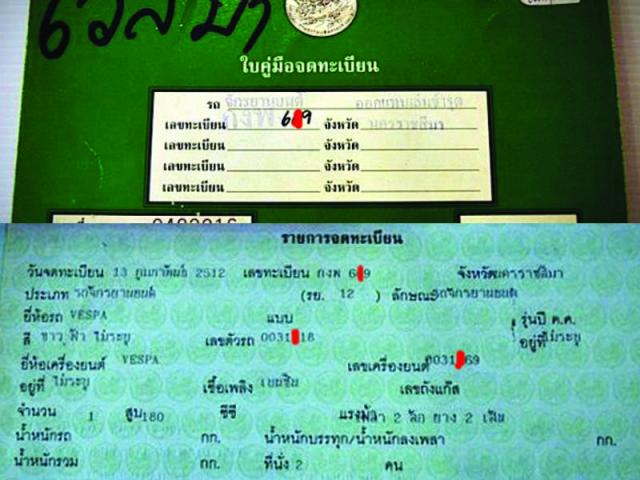 เวสป้า
ใบคู่มือจดทะเบียน
รถ จักรยานยนต์ ออกแทนเล่มชำรุด
เลขทะเบียน กงพ 6 9 จังหวัด นครราชสีมา
เลขทะเบียน จังหวัด
เลขทะเบียน จังหวัด
เลขทะเบียน จังหวัด
รายการจดทะเบียน
วันจดทะเบียน 13 กุมภาพันธ์ 2512 เลขทะเบียน กงพ 6 9 จังหวัดนครราชสีมา
ประเภท รถจักรยานยนต์ (รย. 12 ) ลักษณะรถจักรยานยนต์
ยี่ห้อรถ VESPA แบบ รุ่นปี ค.ศ.
สี ขาว ฟ้า ไม่ระบุ เลขตัวรถ 0031 18 อยู่ที่ ไม่ระบุ
ยี่ห้อเครื่องยนต์ VESPA เลขเครื่องยนต์ 0031 69
อยู่ที่ ไม่ระบุ เชื้อเพลิง เบนซิน เลขถังแก๊ส
จำนวน 1 สูบ 180 ซีซี แรงม้า 2 ล้อ ยาง 2 เส้น
น้ำหนักรถ กก. น้ำหนักบรรทุก/น้ำหนักลงเพลา กก.
น้ำหนักรวม กก. ที่นั่ง 2 คน